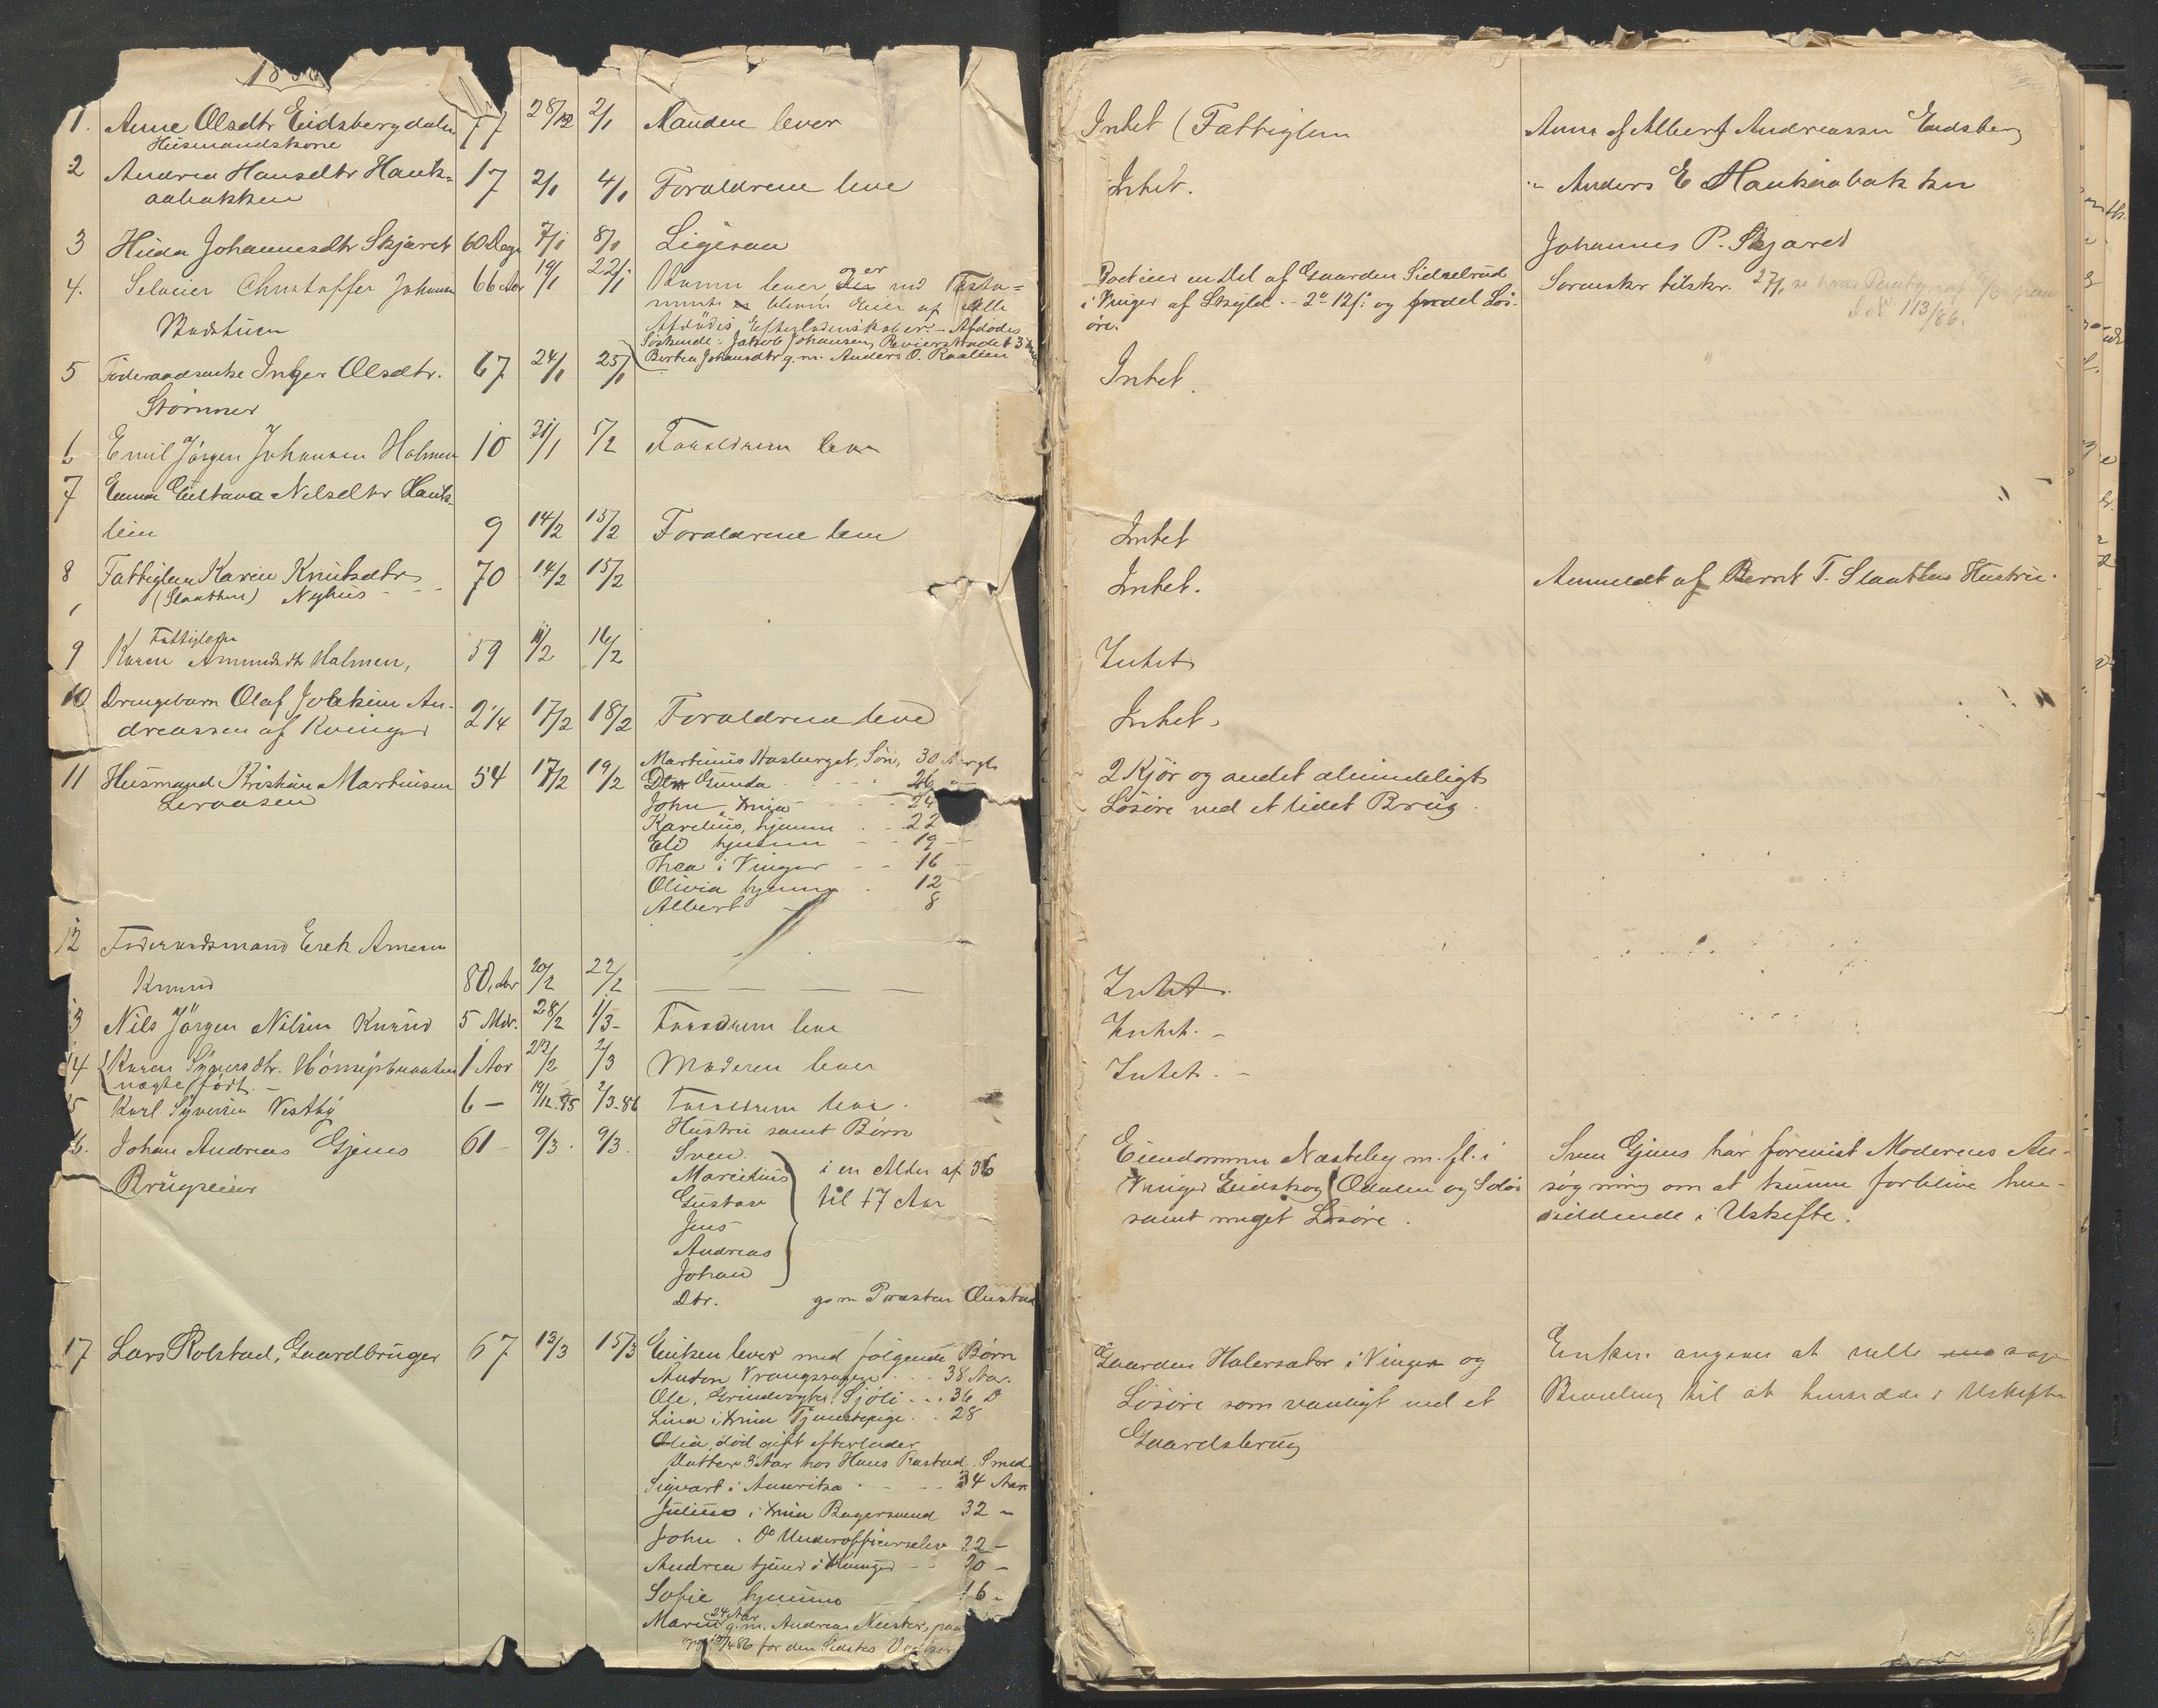 188
1. Anne Olsdtr Eidsbergdalen 77 28/12 2/1 Manden lever
Husmandskone
2 Andrea Hansdtr Hauk=
aabakken 17 2/1 4/1 Forældrene leve
3 Hilda Johannesdtr Skjæret 60 Dage 7/1 8/1 Ligesaa
4. Selveier Christoffer Johansen 66 Aar 19/1 22/1 Konen lever og er ved Testa=
mente bleven Eier af Alle
Budstuen
Afdødes Efterladenskaber. – Afdødes
Søskende: Jakob Johansen
Berthea Johansdtr g.m. Anders O.
5 Føderaadsenke Inger Olsdtr. 67 24/1 25/1
Stømner
6 Emil Jørgen Johansen Holmen 10 31/1 5/2 Forældrene leve
7 Emma Gustava Nilsdtr Hauk-
lien 9 14/2 15/2 Forældrene leve
8 Fattiglem Karen Knutsdtr 70 14/2 15/2
(Slaatten) Nyhus
Fattiglem
9 Karen Amundsdtr Holmen, 59 11/2 16/2
10 Drengebarn Olaf Joakim An-
dreassen af Kvinger 2 1/4 17/2 18/2 Forældrene leve
11 Husmand Kristian Martinsen 54 17/2 19/2
Leraasen
Martinus Hasberget, Søn, 30 Aar gl.
Dtr Gunda 26
John, Xnia 24
Karelius, hjemme 22
Eli hjemme 19
Thea i Vinger 16
Olivia hjemme 12
Albert 8
12 Føderaadsmand Erek Arnesen
Knurud 80 Aar 20/2 22/2
13 Nils Jørgen Nilsen Knurud 5 Mdr. 28/2 1/3 Forældrene leve
14 Karen Syversdtr. 1 Aar 23/2 2/3 Moderen lever
uægte født. –
15 Karl Syversen Vestby 6 – 19/12-85 2/3-86 Forældrene leve.
16. Johan Andreas Gjems 61 – 9/3. 9/3. Hustru samt Børn
Brugseier
Sven
Marelius
Gustav
Jens
Andreas
Johan
i en Alder af 36
til 17 Aar
Dtr. g. m. Præsten Anstad
17 Lars Rolstad, Gaardbruger 67 13/3 15/3 Enken lever med følgende Børn
Anton Vrangssagen 38 Aar.
Ole, Grindevogter, Sjøli 36 D
Lina i Xnia Tjenestepige 28
Olea, død gift efterlader
Datter 3 Aar hos Hans Rastad Smed
Sigvart i Amerika 34 Aar
Julius i Xnia Bagersvend 32 –
John Do Underofficerselev 22 –
Andrea tjener i Kvinger 20 –
Sofie hjemme 16 –
24 Aar
Maren g.m. Andreas Mester, paa
for den Sidstes
Intet (Fattiglem
Anm af Albert Andreassen Eidsberg
Intet.
" Anders E Haukaabakken
Johannes P. Skjæret
Boet eier en Del af Gaarden Sidselrud
i Vinger af Skyld – 2 o 12 f: og en del Løs-
øre.
Sorenskr. tilskr. 27/1
113/86.
Intet.
Intet
Intet.
Anmeldt af Bernt T. Slaattens Hustru.
Intet
Intet.
2 Kjør og andet almindeligt
Løsøre ved et lidet Brug.
Intet.
Intet. –
Intet. –
Eiendommen Næsteby m. fl. i
Vinger Eidskog, Odalen og Solør
samt meget Løsøre.
Sven Gjems har forevist Moderens An-
søgning om at kunne forblive hen-
siddende i Uskifte.
Gaarden Holersæter i Vinger og
Løsøre som vanligt ved et
Gaardsbrug
Enken angiver at ville
Bevilling til at hensidde i Uskifte